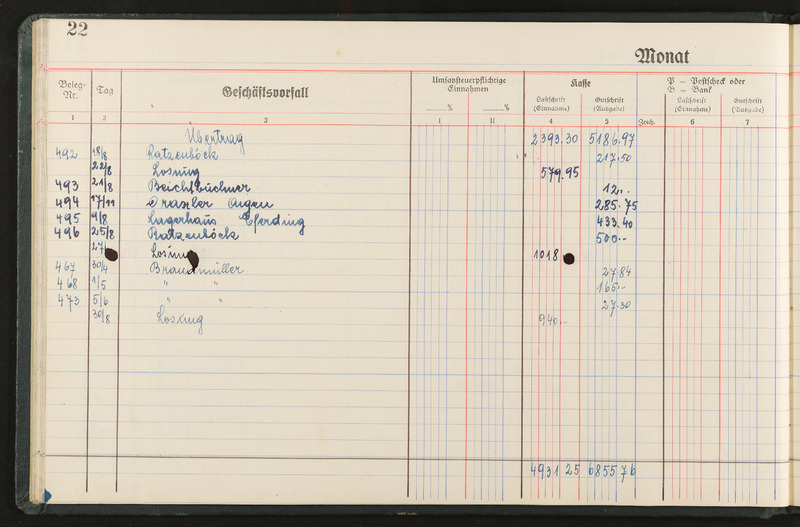 22
Monat
Beleg-Nr. Tag Geschäftsvorfall Umsatzsteuerpflichtige Einnahmen Kasse P = Postscheck oder B = Bank
% % Lastschrift (Einnahme) Gutschrift (Ausgabe) Zeich. Lastschrift (Einnahme) Gutschrift (Ausgabe)
1 2 3 I II 4 5 6 7
Übertrag 2393.30 5186.97
492 18/8 Ratzenböck 217.50
22/8 Losung 579.95
493 21/8 Beichtbuchner 12.-
494 17/11 Draxler Augen 285.75
495 9/8 Lagerhaus Eferding 433.40
496 25/8 Ratzenböck 500.-
27/ Losung 1018
467 30/4 Brandmüller 27.84
468 1/5 " " 165.-
473 5/6 " " 27.30
30/8 Losung 940.-
4931 25 6855 76